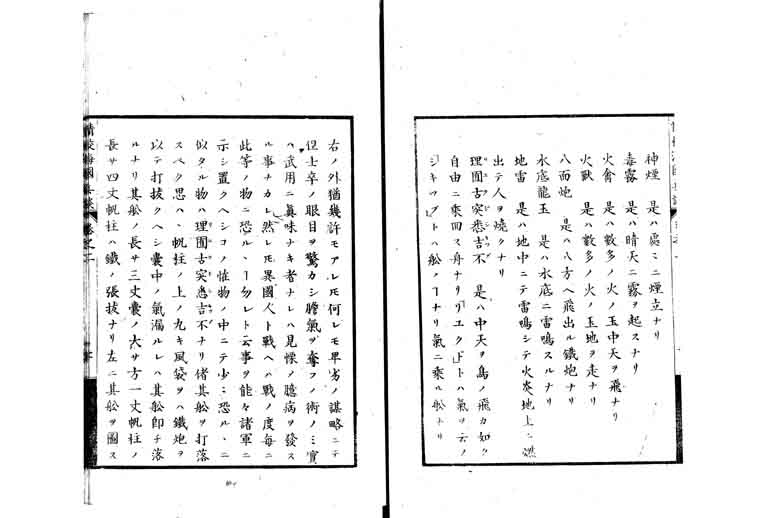 神煙　是ハ處々ニ煙立ナリ
毒霧　是ハ晴天ニ霧ヲ起スナリ
火禽　是ハ數多ノ火ノ玉中天ヲ飛ナリ
火獸　是ハ數多ノ火ノ玉地ヲ走ナリ
八面炮　是ハ八方ヘ飛出ル鐵炮ナリ
水底龍玉　是ハ水底ニ雷鳴スルナリ
地雷　是ハ地中ニテ雷鳴シテ火炎地上ニ
出テ人ヲ燒クナリ
理圄古突悉吉不　是ハ中天ヲ鳥ノ飛カ如ク
自由ニ乘回ス舟ナリリユクドトハ氣ヲ云ノ
シキップトハ舩ノヿナリ氣ニ乘ル舩ナリ
右ノ外猶幾許モアレ𪜈何レモ卑劣ノ謀略ニテ
但士卒ノ眼目ヲ驚カシ膽氣ヲ奪フノ術ノミ實
ハ武用ニ眞味ナキ者ナレハ見慄ノ臆病ヲ發ス
ル事ナカレ然レ𪜈異國人ト戰ヘハ戰ノ度毎ニ
此等ノ物ニ恐ルヽヿ勿レト云事ヲ能々諸軍ニ
示シ置クヘシコノ怪物ノ中ニテ少ミ恐ルヽニ
似タル物ハ理圄古突悉吉不ナリ偖其舩ヲ打落
スベク思ハヽ帆柱ノ上ノ丸キ風袋ヲハ鐵炮ヲ
以テ打拔クヘシ囊中ノ氣漏ルレハ其舩即チ落
ルナリ其舩ノ長サ三丈囊ノ大サ方一丈帆柱ノ
長サ四丈帆柱ハ鐵ノ張拔ナリ左ニ其舩ヲ圖ス